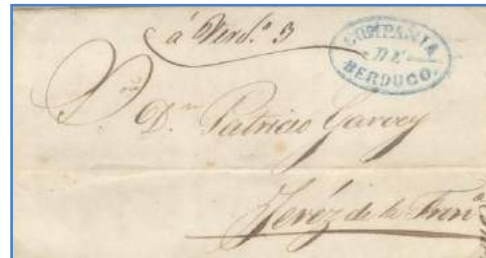 á Verd.º 3
COMPAÑIA
DE
BERDUGO.
S.or D.n Patricio Garvey
Jeréz de la Fron.ª